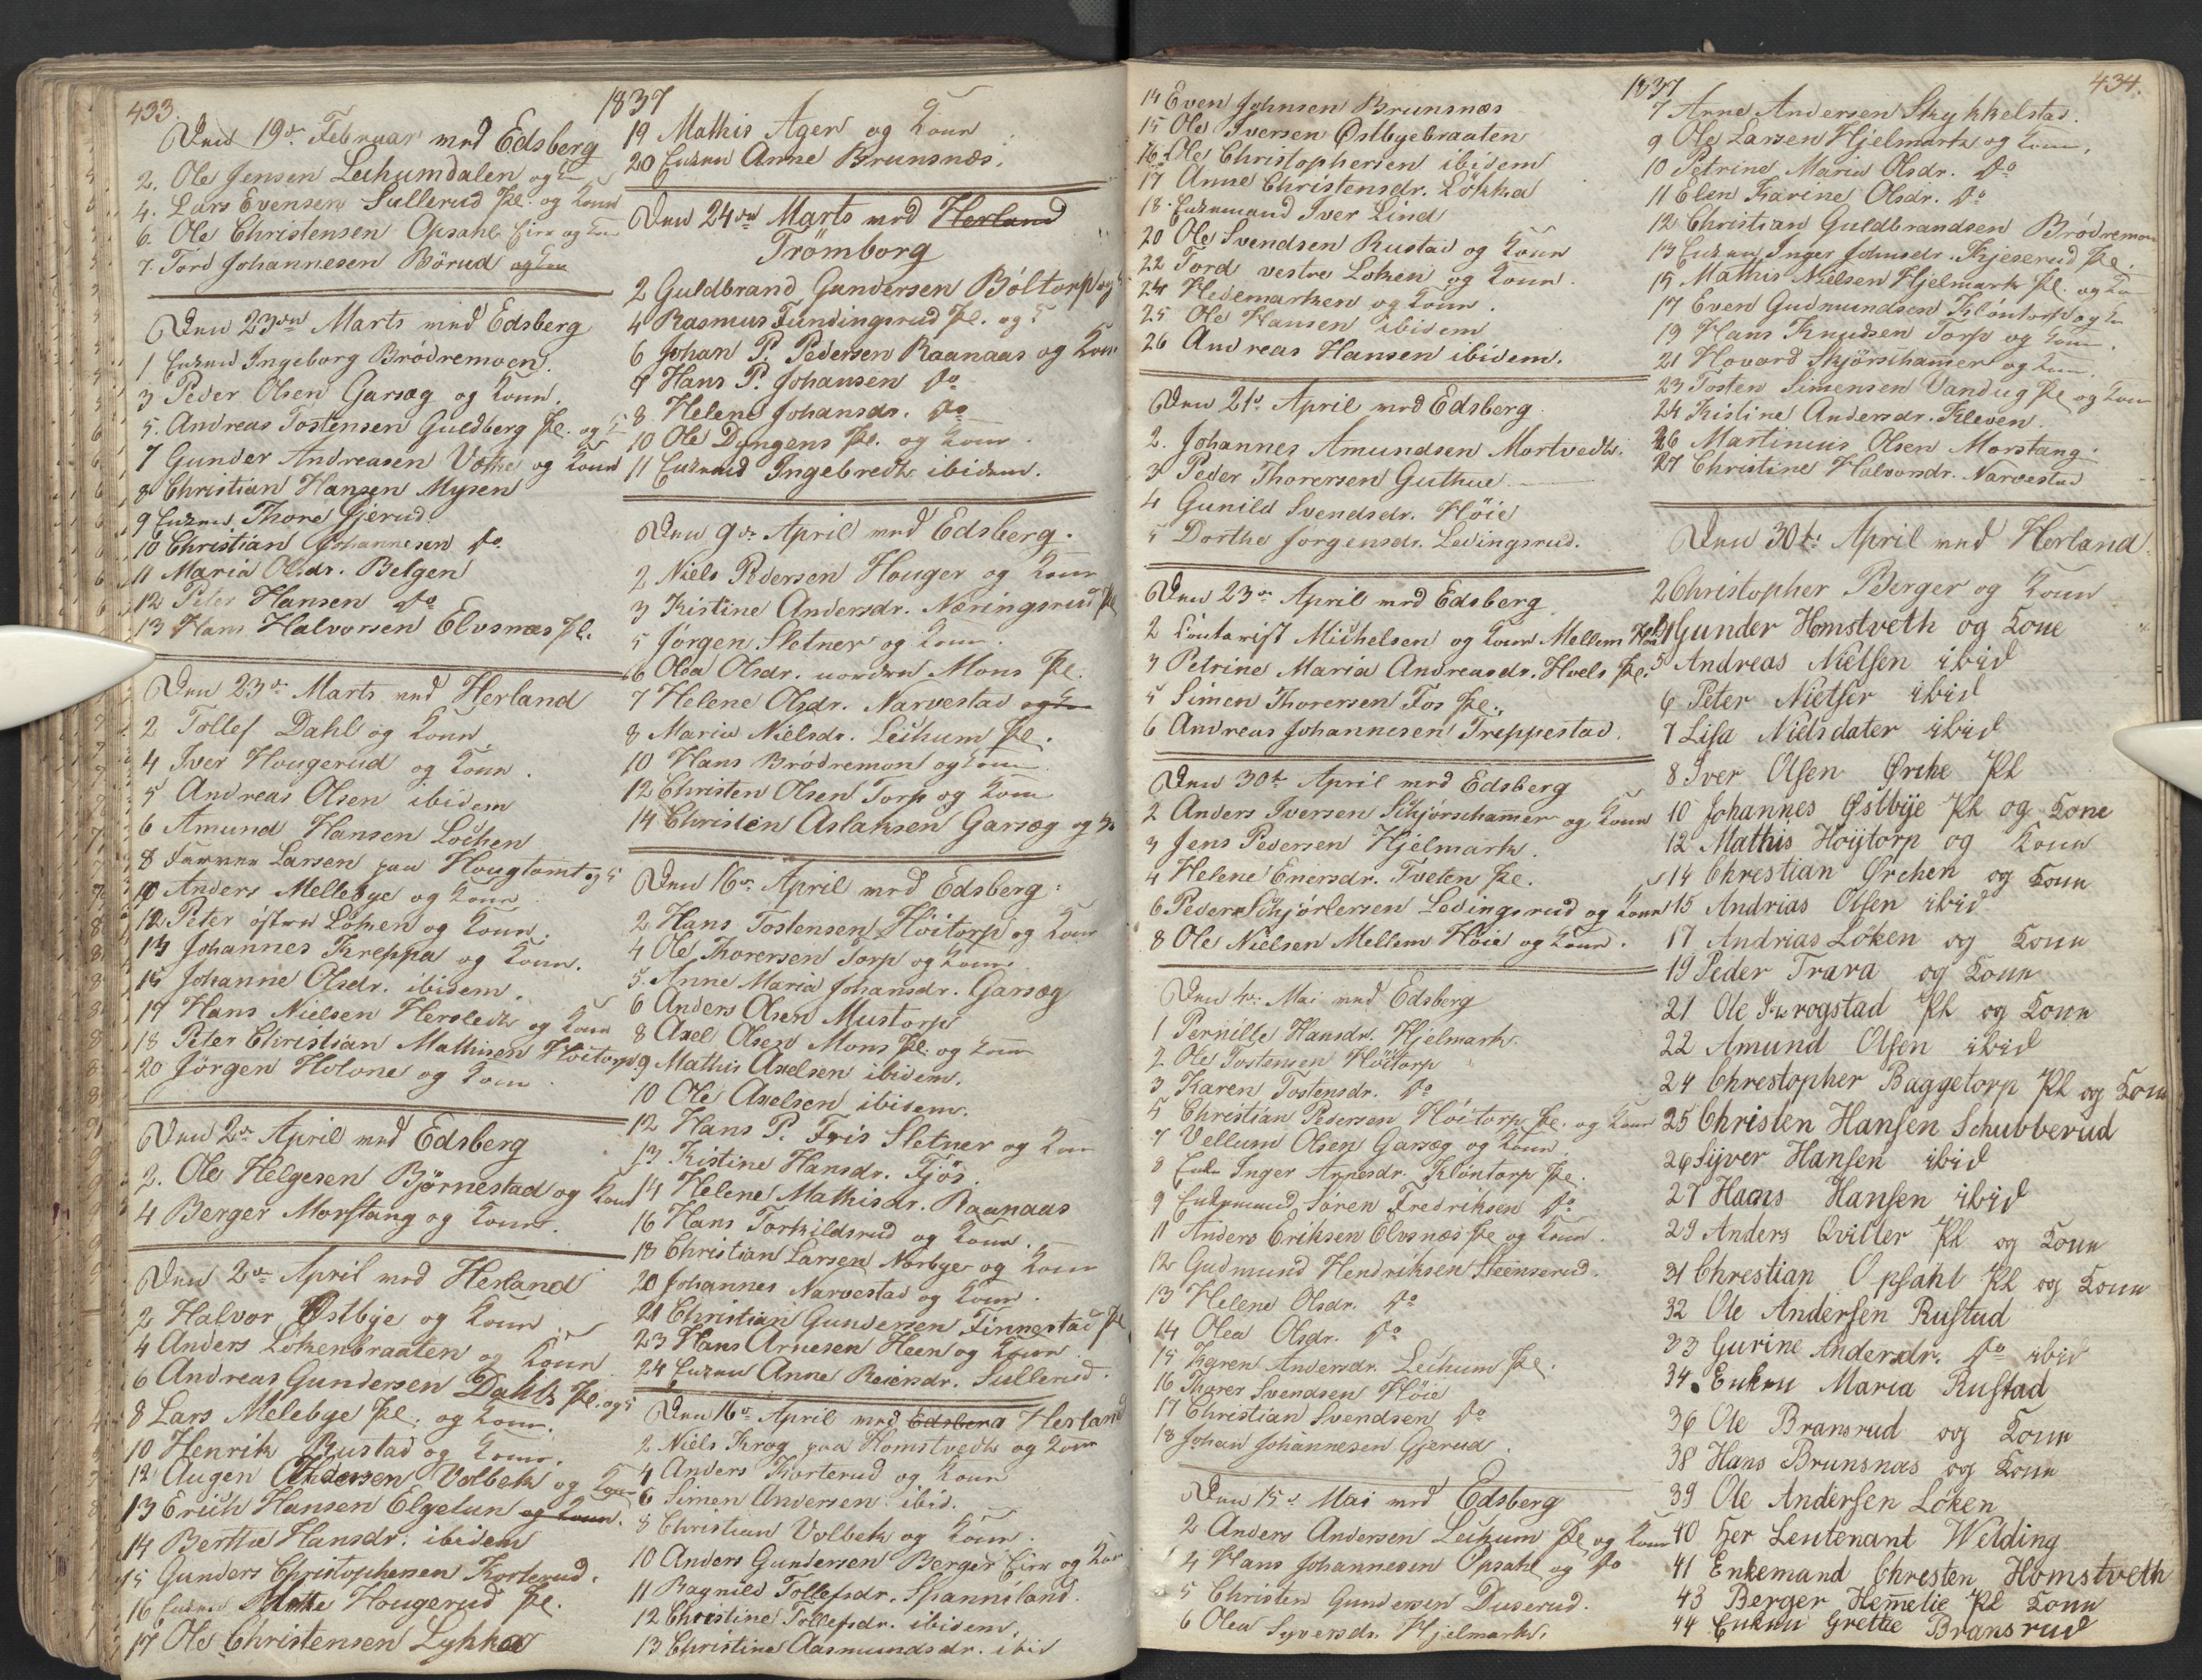 433.
1837
Den 19de Februar ved Edsberg
2. Ole Jensen Lechumdalen og K
4. Lars Evensen Sullerud Pl. og Kone
6. Ole Christensen Opsahl Eier og Kone
7. Tord Johannesen Börud og Kone
Den 23de Marts ved Edsberg
1 Enken Ingeborg Brödremoen.
3 Peder Olsen Garsæg og Kone.
5. Andreas Tostensen Guldberg Pl. og K
7 Gunder Andreasen Votke og Kone
8 Christian Hansen Mysen
9 Enken Thore Gjerud.
10 Christian Johannesen do
11 Maria Olsdr. Belgen
12 Peter Hansen do
13 Hans Halvorsen Elvsnæs Pl.
Den 23de Marts ved Herland
2 Tollef Dahl og Kone
4 Iver Hougerud og Kone.
5 Andreas Olsen ibidem
6 Amund Hansen Löchen
8 Larsen paa Hougtomt og K
10 Anders Mellebye og Kone
12 Peter östre Löken og Kone.
14 Johannes Kreppa og Kone.
15 Johanne Olsdr. ibidem.
17 Hans Nielsen Hersledt og Kone
18 Peter Christian Mathisen Höitorp
20 Jörgen Holone og Kone.
Den 2de April ved Edsberg
2. Ole Helgesen Björnestad og Kone
4 Berger Morstang og Kone.
Den 2de April ved Herland
2 Halvor Østbye og Kone
4 Anders Lökenbraaten og Kone
6 Andreas Gundersen Dahls Pl. og K
8 Lars Melebye Pl. og Kone.
10 Henrik Rustad og Kone.
12 Augen Andersen Volbek og Kone
13 Erich Hansen Elgetun og Kone.
14 Berthe Hansdr. ibidem
15 Gunders Christophersen Korterud.
16 Enken Hougerud Pl.
17 Ole Christensen Lykka
19 Mathis Ager og Kone
20 Enken Anne Brunsnæs.
Den 24de Marts ved Herland
Trömborg
2 Guldbrand Gundersen Böltorp og K
4 Rasmus Fundingsrud Pl. og K
6 Johan P. Pedersen Raanaas og Kone
7 Hans P. Johansen do
8 Helene Johansdr. do
10 Ole Dyngens Pl. og Kone.
11 Enkend Ingebredt ibidem.
Den 9de April ved Edsberg.
2 Niels Pedersen Houger og Kone
3 Kistine Andersdr. Næringsrud Pl
5 Jörgen Sletner og Kone.
6 Olea Olsdr. nordre Mons Pl.
7 Helene Olsdr. Narvestad og Kone
8 Maria Nielsdr. Leikum Pl.
10 Hans Brödremon og Kone
12 Christen Olsen Torp og Kone
14 Christen Aslaksen Garsæg og K
Den 16de April ved Edsberg:
2 Hans Tostensen Höitorp og Kone
4 Ole Thorersen Torp og Kone
5. Anne Maria Johansdr. Garsæg
6 Anders Olsen Mustorp
8 Axel Olsen Mons Pl. og Kone
9 Mathis Axelsen ibidem.
10 Ole Axelsen ibidem.
12 Hans P. Friis Sletner og Kone
13 Kistine Hansdr. Fjös.
14 Helene Mathisdr. Raanaas
16 Hans Torkildsrud og Kone.
18 Christian Larsen Nærbye og Kone
20 Johannes Narvestad og Kone.
21 Christian Gundersen Finnestad Pl
23 Hans Arnesen Heen og Kone.
24 Enken Anne Reiersdr. Sullerud.
Den 16de April ved Edsberg Herland
2 Niels Krog paa Homstvedt og Kone
4 Anders Korterud og Kone
6 Simen Andersen ibid.
8 Christian Volbek og Kone.
10 Anders Gundersen Berger Eier og Kone
11 Ragnild Tollefsdr. Spannisland.
12 Christine Tollefsdr. ibidem.
13 Christine Aasmundsdr. ibid
434.
1837
14 Even Johnsen Brunsnæs
15 Ole Iversen Østbyebraaten
16 Ole Christophersen ibidem
17 Anne Christensdr. Lökka
18 Enkemand Iver Lind
20 Ole Svendsen Rustad og Kone
22 Tord vestre Loken og Kone.
24 Hedemarken og Kone.
25 Ole Hansen ibidem
26 Andreas Hansen ibidem.
Den 21de April ved Edsberg
2. Johannes Amundsen Mortvedt.
3 Peder Thorersen Guthue
4 Gunild Svendsdr. Höie
5 Dorthe Jorgensdr. Ledingsrud.
Den 23de April ved Edsberg
2 Contorist Michelsen og Kone Mellem Höie
3 Petrine Maria Andreasdr. Hvels Pl.
5 Simen Thorersen Fos Pl.
6 Andreas Johannesen Treppestad.
Den 30te April ved Edsberg
2 Anders Iversen Skjörschamer og Kone
3 Jens Pedersen Hjelmark.
4 Helene Enersdr. Tveten Pl.
6 Peder Skjörlersen Ledingsrud og Kone
8 Ole Nielsen Mellem Höie og Kone.
Den 4de Mai ved Edsberg
1 Pernille Hansdr. Hjelmark
2 Ole Tostensen Höitorp
3 Karen Tostensdr. do
5 Christian Pedersen Höitorp Pl. og Kone
7 Vellum Olsen Garsæg og Kone
8 Enk Inger Arnesdr. Klöntorp Pl.
9 Enkemand Sören Fredriksen do
11 Anders Eriksen Elvsnæs Pl og Kone.
12 Gudmund Hendriksen Steenserud.
13 Helene Olsdr. do
14 Olea Olsdr. do
15 Karen Andersdr. Leikum Pl.
16 Thorer Svendsen Höie
17 Christian Svendsen do
18 Johan Johannesen Gjerud.
Den 15de Mai ved Edsberg
2 Anders Andersen Leikum Pl og Kone
4 Hans Johannesen Opsahl og do
5 Christen Gundersen Duserud.
6 Olea Syversdr. Hjelmark.
7 Anne Andersen Skykkelstad.
9 Ole Larsen Hjelmark og Kone.
10 Petrine Maria Olsdr. do
11 Elen Karine Olsdr. do
12 Christian Guldbrandsen Brödremon
13 Enken Inger Johnsdr. Kjeserud Pl.
15 Mathis Nielsen Hjelmark Pl. og Ko
17 Even Gudmundsen Klöntorp og K
19 Hans Knudsen Torp og Kone.
21 Hovard Skjörschamer og Kone.
23 Tosten Simensen Vandug Pl og Kone
24 Kistine Andersdr. Kleven.
26 Martinius Olsen Morstang.
27 Christine Halvorsdr. Narvestad
Den 30te April ved Herland.
2 Christopher Berger og Kone
4 Gunder Homstveth og Kone
5 Andreas Nielsen ibid
6 Peter Nielser ibid
7 Lisa Nielsdater ibid
8 Iver Olsen Ørche Pl
10 Johannes Østbye Pl og Kone
12 Mathis Hoytorp og Kone
14 Chrestian Ørchen og Kone
15 Andrias Olsen ibid
17 Andrias Löken og Kone
19 Peder Trara og Kone
21 Ole Krogstad Pl og Kone
22 Amund Olsen ibid
24 Chrestopher Baggetorp Pl og Kone
25 Christen Hansen Schubberud
26 Syver Hansen ibid
27 Hans Hansen ibid
29 Anders Qviller Pl og Kone
31 Chrestian Opsahl Pl og Kone
32 Ole Andersen Rustad
33 Gurine Andersdr. do ibid
34. Enken Maria Rustad
36 Ole Bransrud og Kone
38 Hans Brunsnas og Kone
39 Ole Andersen Loken
40 Her Leutenant Welding
41 Enkemand Chresten Homstveth
43 Berger Hemelie Pl Kone
44 Enken Grethe Bransrud